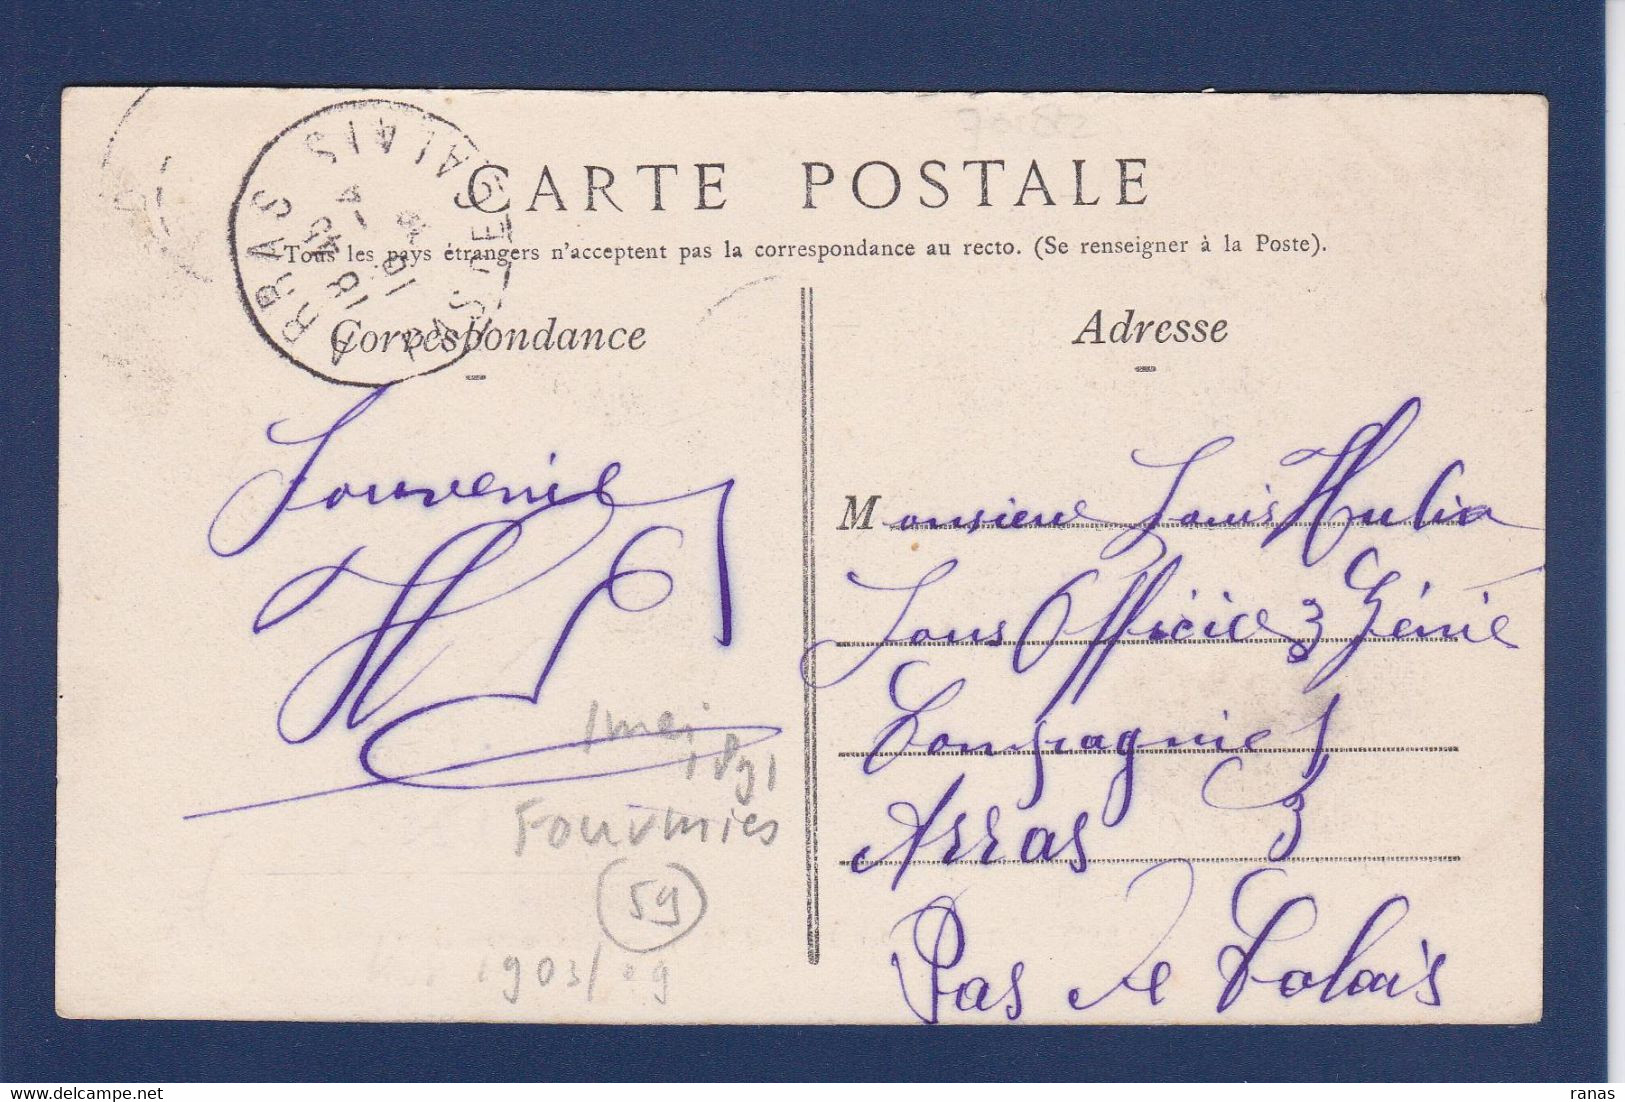 CARTE POSTALE
Tous les pays étrangers n'acceptent pas la correspondance au recto. (Se renseigner à la Poste).
ARRAS
PAS DE CALAIS
18 45
Correspondance
Adresse
Souvenir
Monsieur Louis Hulin
Sous Officier 3 Génie
Compagnie
Arras
Pas de Calais
1 mai
1891
Fourmies
59
1903/09
ranas